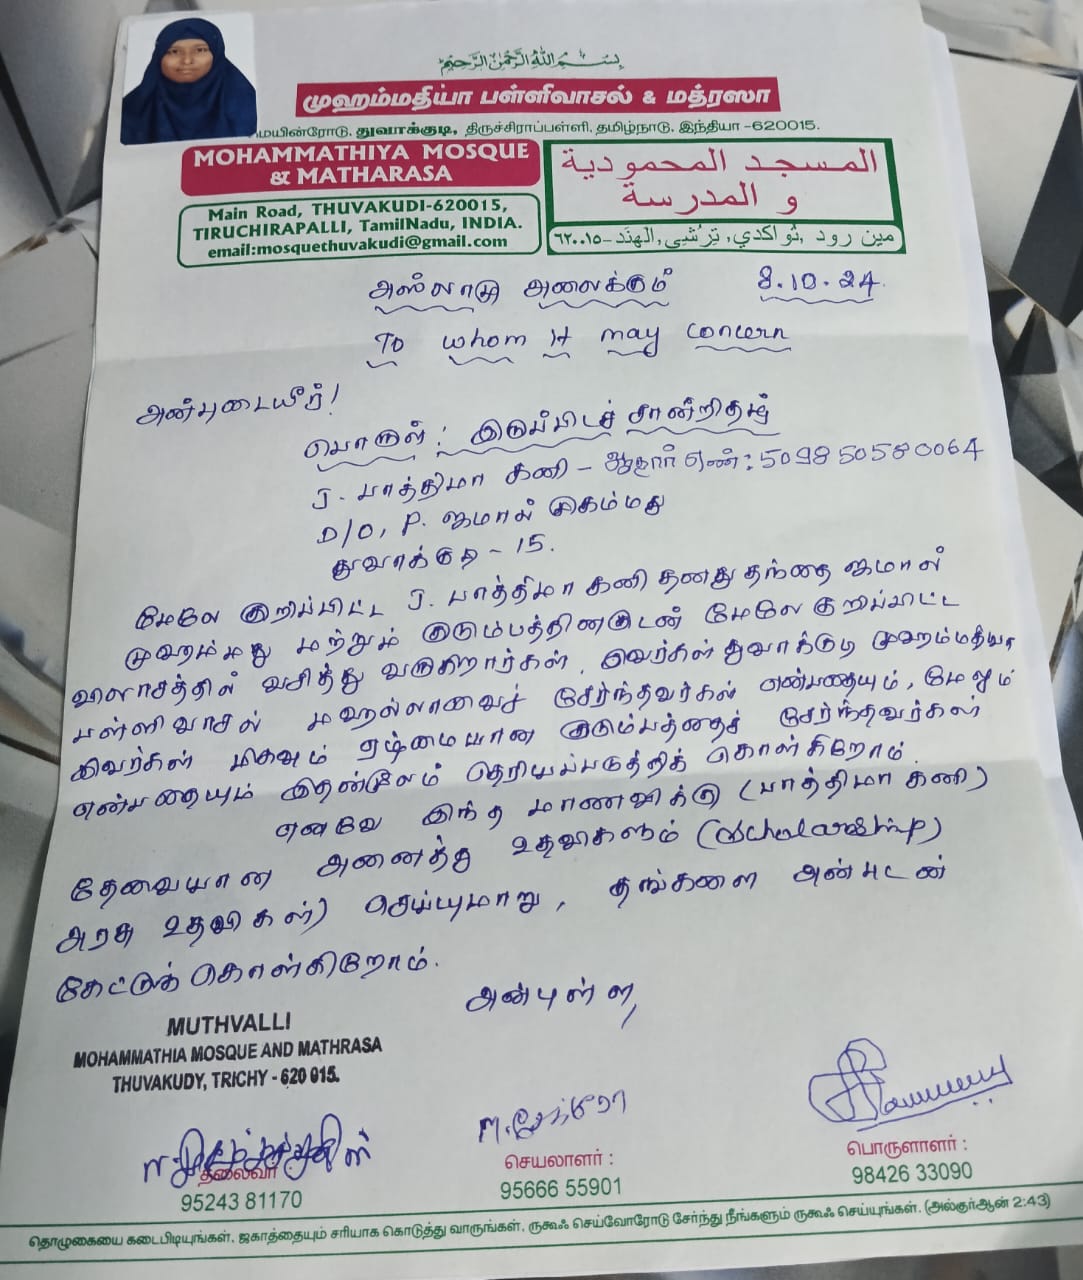 بِسْــــمِ اللهِ الرَّحْمٰنِ الرَّحِيْمِ
முஹம்மதிய்யா பள்ளிவாசல் & மத்ரஸா
மெயின்ரோடு, துவாக்குடி, திருச்சிராப்பள்ளி, தமிழ்நாடு, இந்தியா -620015.
MOHAMMATHIYA MOSQUE
& MATHARASA
Main Road, THUVAKUDI-620015,
TIRUCHIRAPALLI, TamilNadu, INDIA.
email:mosquethuvakudi@gmail.com
المسجد المحمودية
و المدرسة
مين رود ,تواكدي, ترشي, الهند-٦٢٠٠١٥
அஸ்ஸலாமு அலைக்கும் 8.10.24.
To whom It may concern
அன்புடையீர்!
பொருள் : இருப்பிடச் சான்றிதழ்
J. பாத்திமா கனி - ஆதார் எண் : 509850580064
D/O, P. ஜமால் முகம்மது
துவாக்குடி - 15.
மேலே குறிப்பிட்ட J. பாத்திமா கனி தனது தந்தை ஜமால்
முஹம்மது மற்றும் குடும்பத்தினருடன் மேலே குறிப்பிட்ட
விலாசத்தில் வசித்து வருகிறார்கள். இவர்கள் துவாக்குடி முஹம்மதியா
பள்ளிவாசல் மஹல்லாவைச் சேர்ந்தவர்கள் என்பதையும், மேலும்
இவர்கள் மிகவும் ஏழ்மையான குடும்பத்தைச் சேர்ந்தவர்கள்
என்பதையும் இதன்மூலம் தெரியப்படுத்திக் கொள்கிறோம்.
எனவே இந்த மாணவிக்கு (பாத்திமா கனி)
தேவையான அனைத்து உதவிகளும் (Scholarship)
அரசு உதவிகள்) செய்யுமாறு, தங்களை அன்புடன்
கேட்டுக் கொள்கிறோம்.
அன்புள்ள,
MUTHVALLI
MOHAMMATHIA MOSQUE AND MATHRASA
THUVAKUDY, TRICHY - 620 015.
தலைவர்
95243 81170
செயலாளர் :
95666 55901
பொருளாளர் :
98426 33090
தொழுகையை கடைபிடியுங்கள், ஜகாத்தையும் சரியாக கொடுத்து வாருங்கள், ருகூஃ செய்வோரோடு சேர்ந்து நீங்களும் ருகூஃ செய்யுங்கள். (அல்குர்ஆன் 2:43)